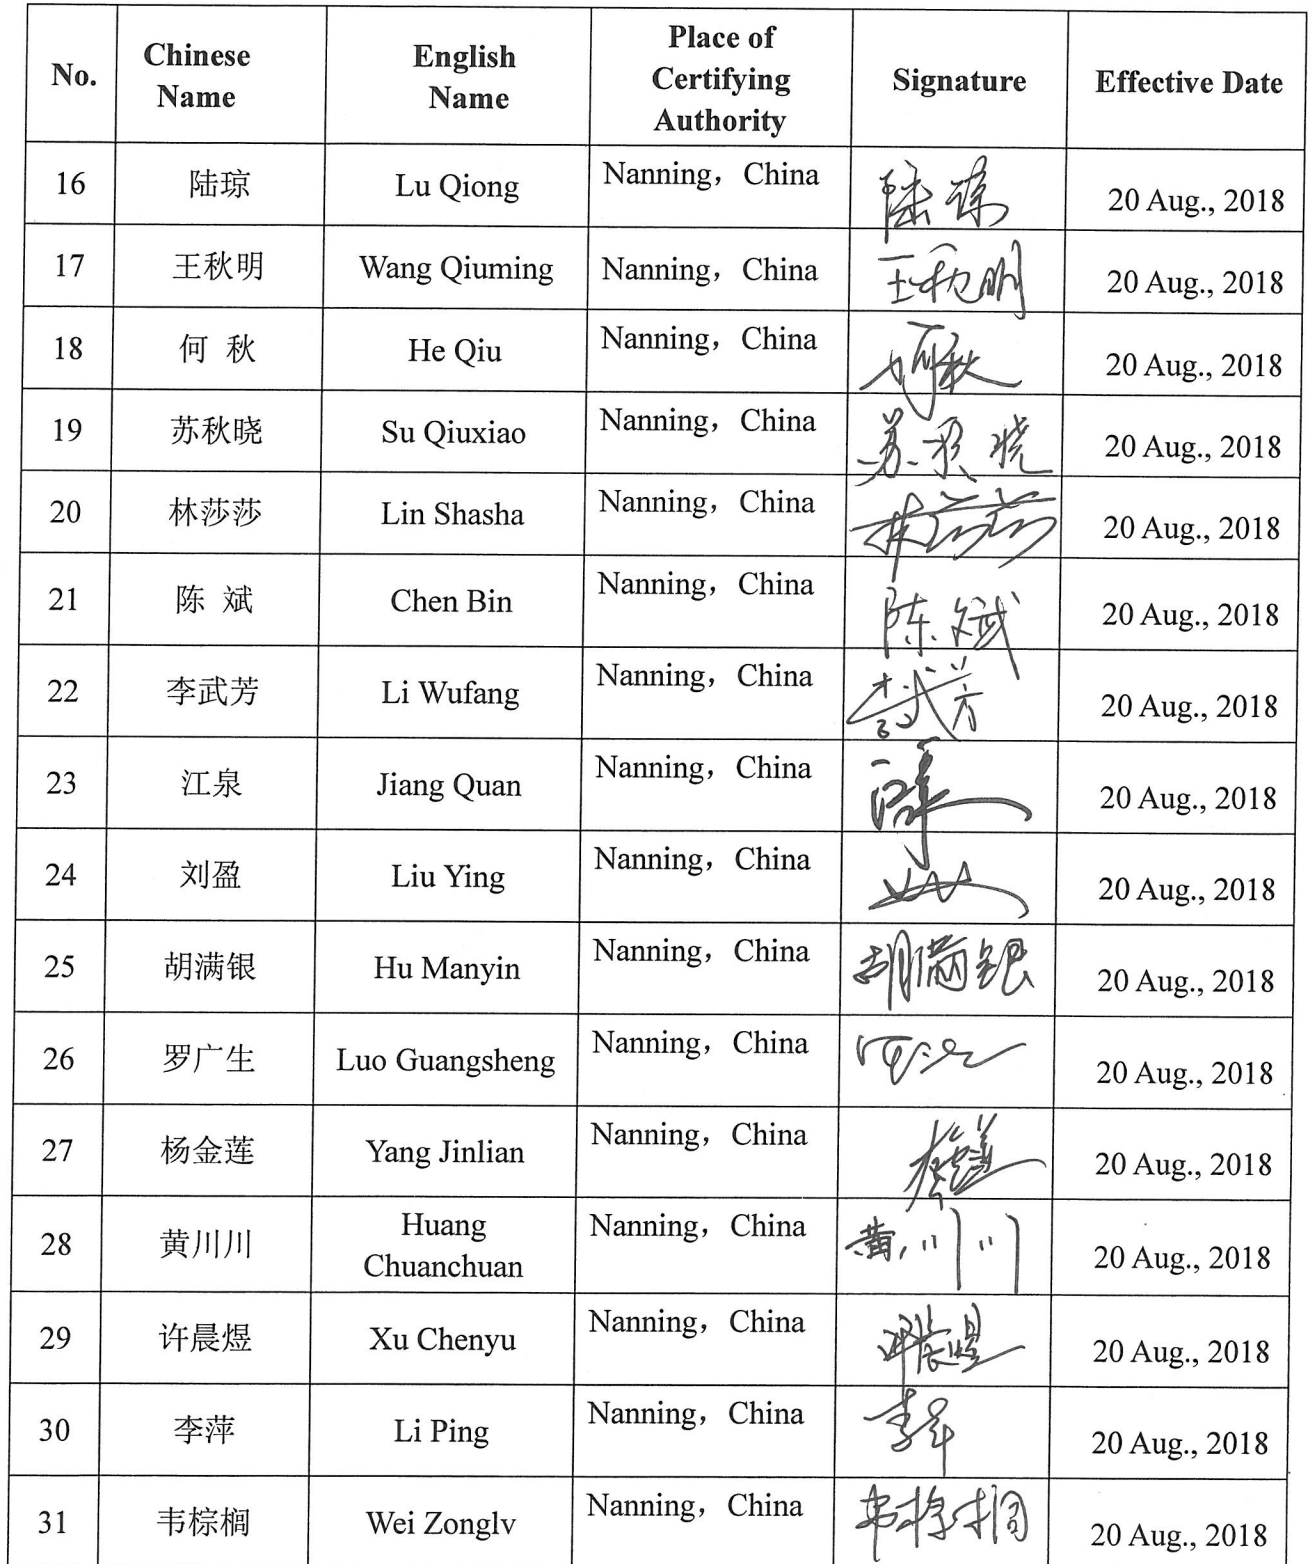 No. Chinese Name English Name Place of Certifying Authority Signature Effective Date
16 陆琼 Lu Qiong Nanning，China 陆琼 20 Aug., 2018
17 王秋明 Wang Qiuming Nanning，China 王秋明 20 Aug., 2018
18 何 秋 He Qiu Nanning，China 何秋 20 Aug., 2018
19 苏秋晓 Su Qiuxiao Nanning，China 苏秋晓 20 Aug., 2018
20 林莎莎 Lin Shasha Nanning，China 林莎莎 20 Aug., 2018
21 陈 斌 Chen Bin Nanning，China 陈斌 20 Aug., 2018
22 李武芳 Li Wufang Nanning，China 李武芳 20 Aug., 2018
23 江泉 Jiang Quan Nanning，China 20 Aug., 2018
24 刘盈 Liu Ying Nanning，China 20 Aug., 2018
25 胡满银 Hu Manyin Nanning，China 胡满银 20 Aug., 2018
26 罗广生 Luo Guangsheng Nanning，China 20 Aug., 2018
27 杨金莲 Yang Jinlian Nanning，China 20 Aug., 2018
28 黄川川 Huang Chuanchuan Nanning，China 黄川川 20 Aug., 2018
29 许晨煜 Xu Chenyu Nanning，China 许晨煜 20 Aug., 2018
30 李萍 Li Ping Nanning，China 李萍 20 Aug., 2018
31 韦棕榈 Wei Zonglv Nanning，China 韦棕榈 20 Aug., 2018